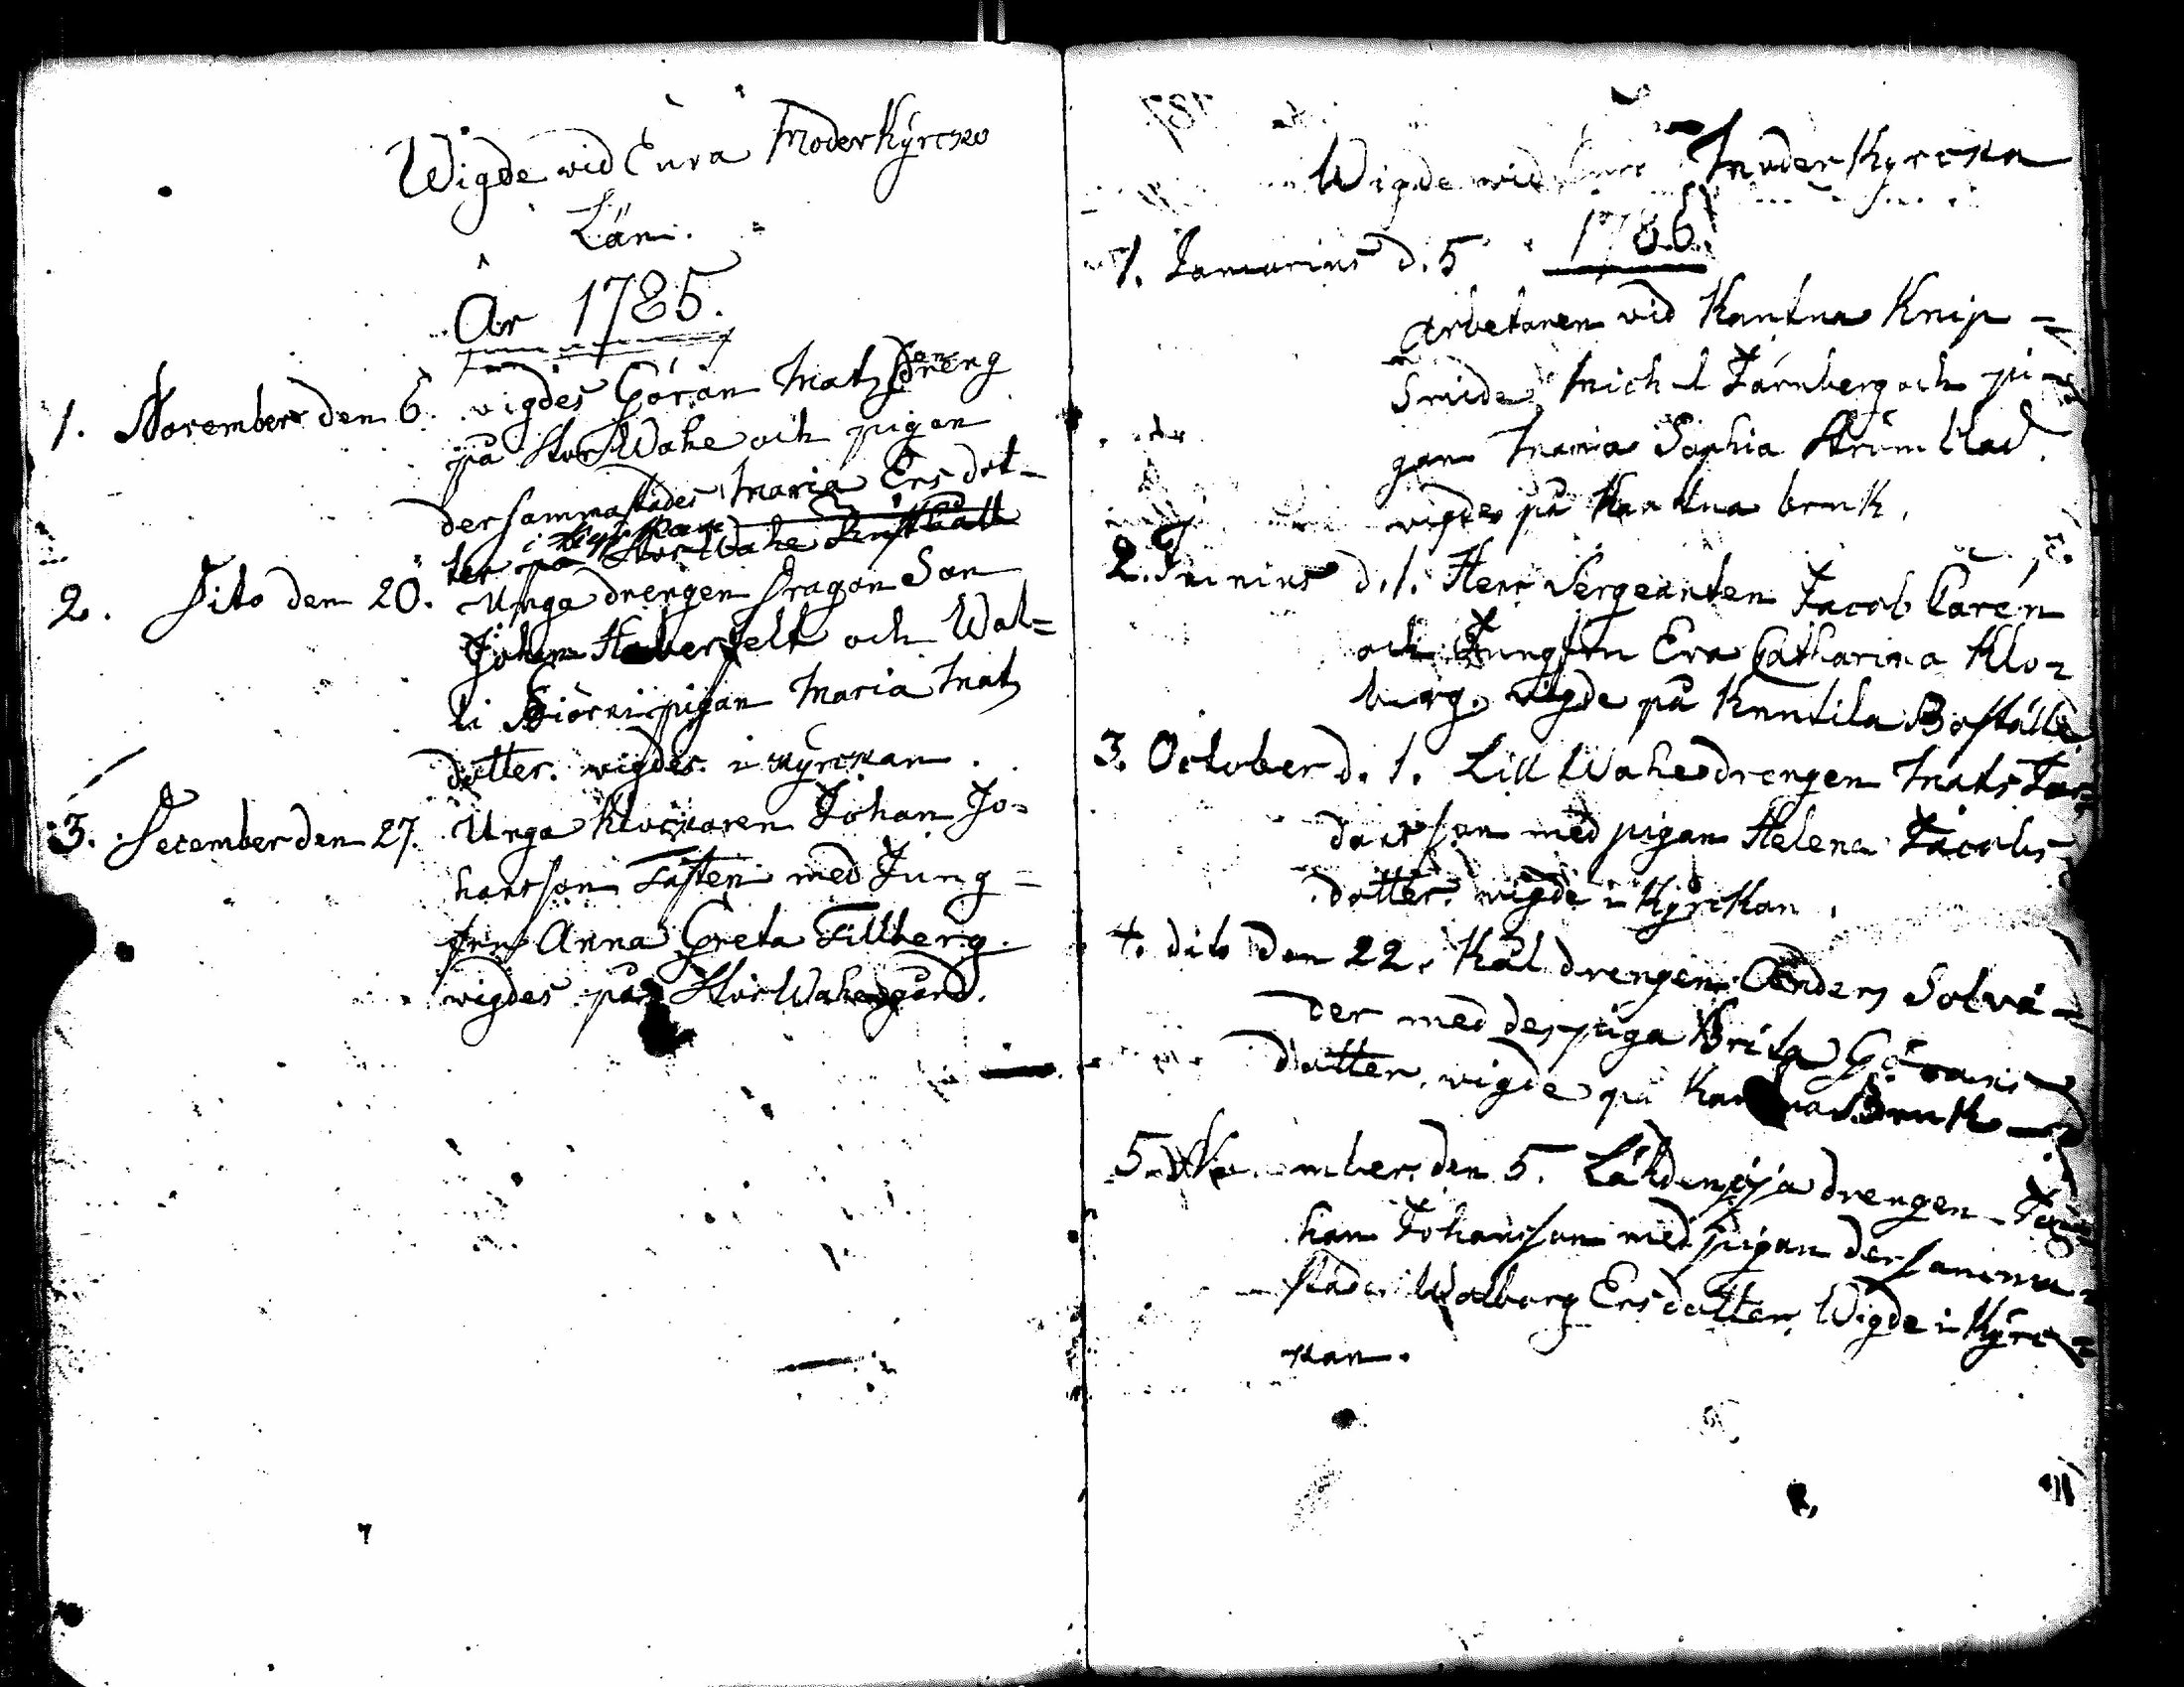 Wigde wid Eura Moderkyrcko
Län.
År 1785.
1. November den 6. vigdes Göran Matz son Dreng
på Stor Wahe och pigan
dersammastädes Maria Ersdot-
i Kyrckan
ter på Stor Wahe
2. Dito den 20. Unga drengen Dragon Son
Johan Haberfelt och Wal=
li Biörni pigan Maria Matz
dotter. vigdes i Kyrckan.
3. December den 27. Unga Klockaren Johan Jo=
hansson Fasten med Jung=
frun Anna Greta Tillberg.
vigdes på Stor Wahegård.
Wigde wid Eura Moderkyrckan
1786
1. Januarius d. 5
Arbetaren vid Kautua Knip=
Smide Michel Tärnberg och pi=
gan Maria Sophia Strömblad.
vigdes på Kautua bruk.
2. Junius d. 1. Herr Sergeanten Jacob Carén
och Jungfru Eva Catharina Klo=
berg. vigde på Knutila Boställe
3. October d. 1. Lill Wahe drengen Mats
son med pigan Helena Jacobs
dotter. wigde i Kyrckan.
4. dito den 22. Kål drengen Anders Solvä=
der med des piga Brita Görans
dotter, vigde på Kautua Bruk
5. November den 5. Lähdenoja drengen Jo=
han Johansson med pigan dersamma=
städes Walborg Ersdotter Wigde i Kyrc=
kan.